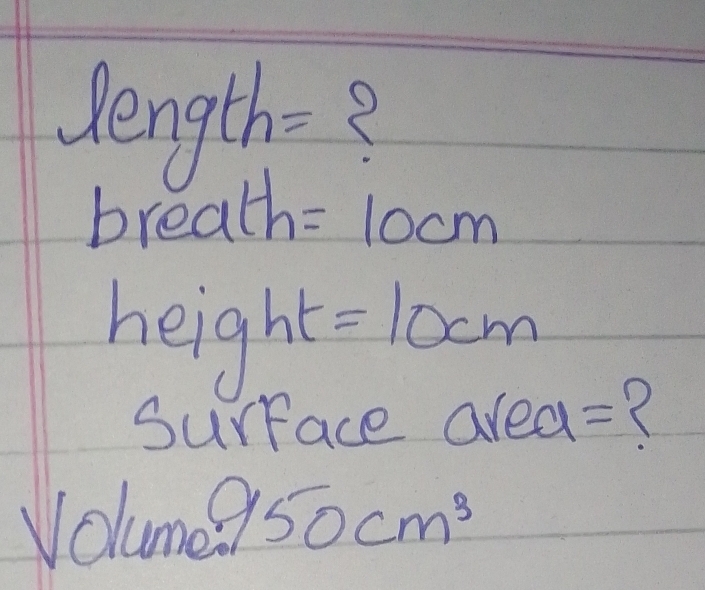 length= ?
breath= 10cm
height= 10cm
surface area=?
Volume:950cm³